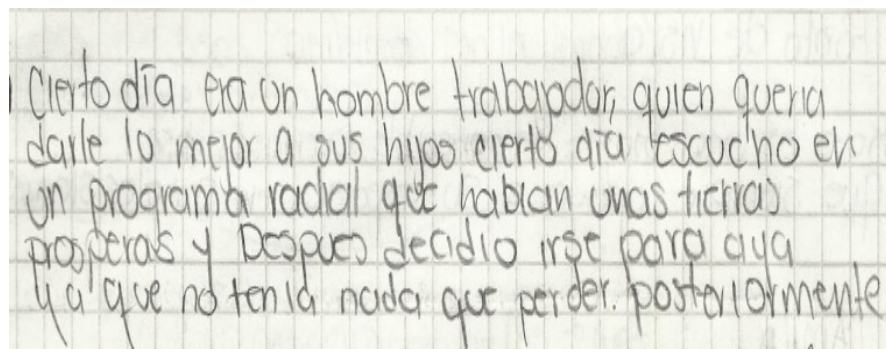 Cierto día era un hombre trabapdor, quien queria
darle lo mejor a sus hijos cierto día escucho en
un programa radial que habian unas tierras
prosperas y Despues decidio irse para aya
ya que no tenia nada que perder. posteriormente